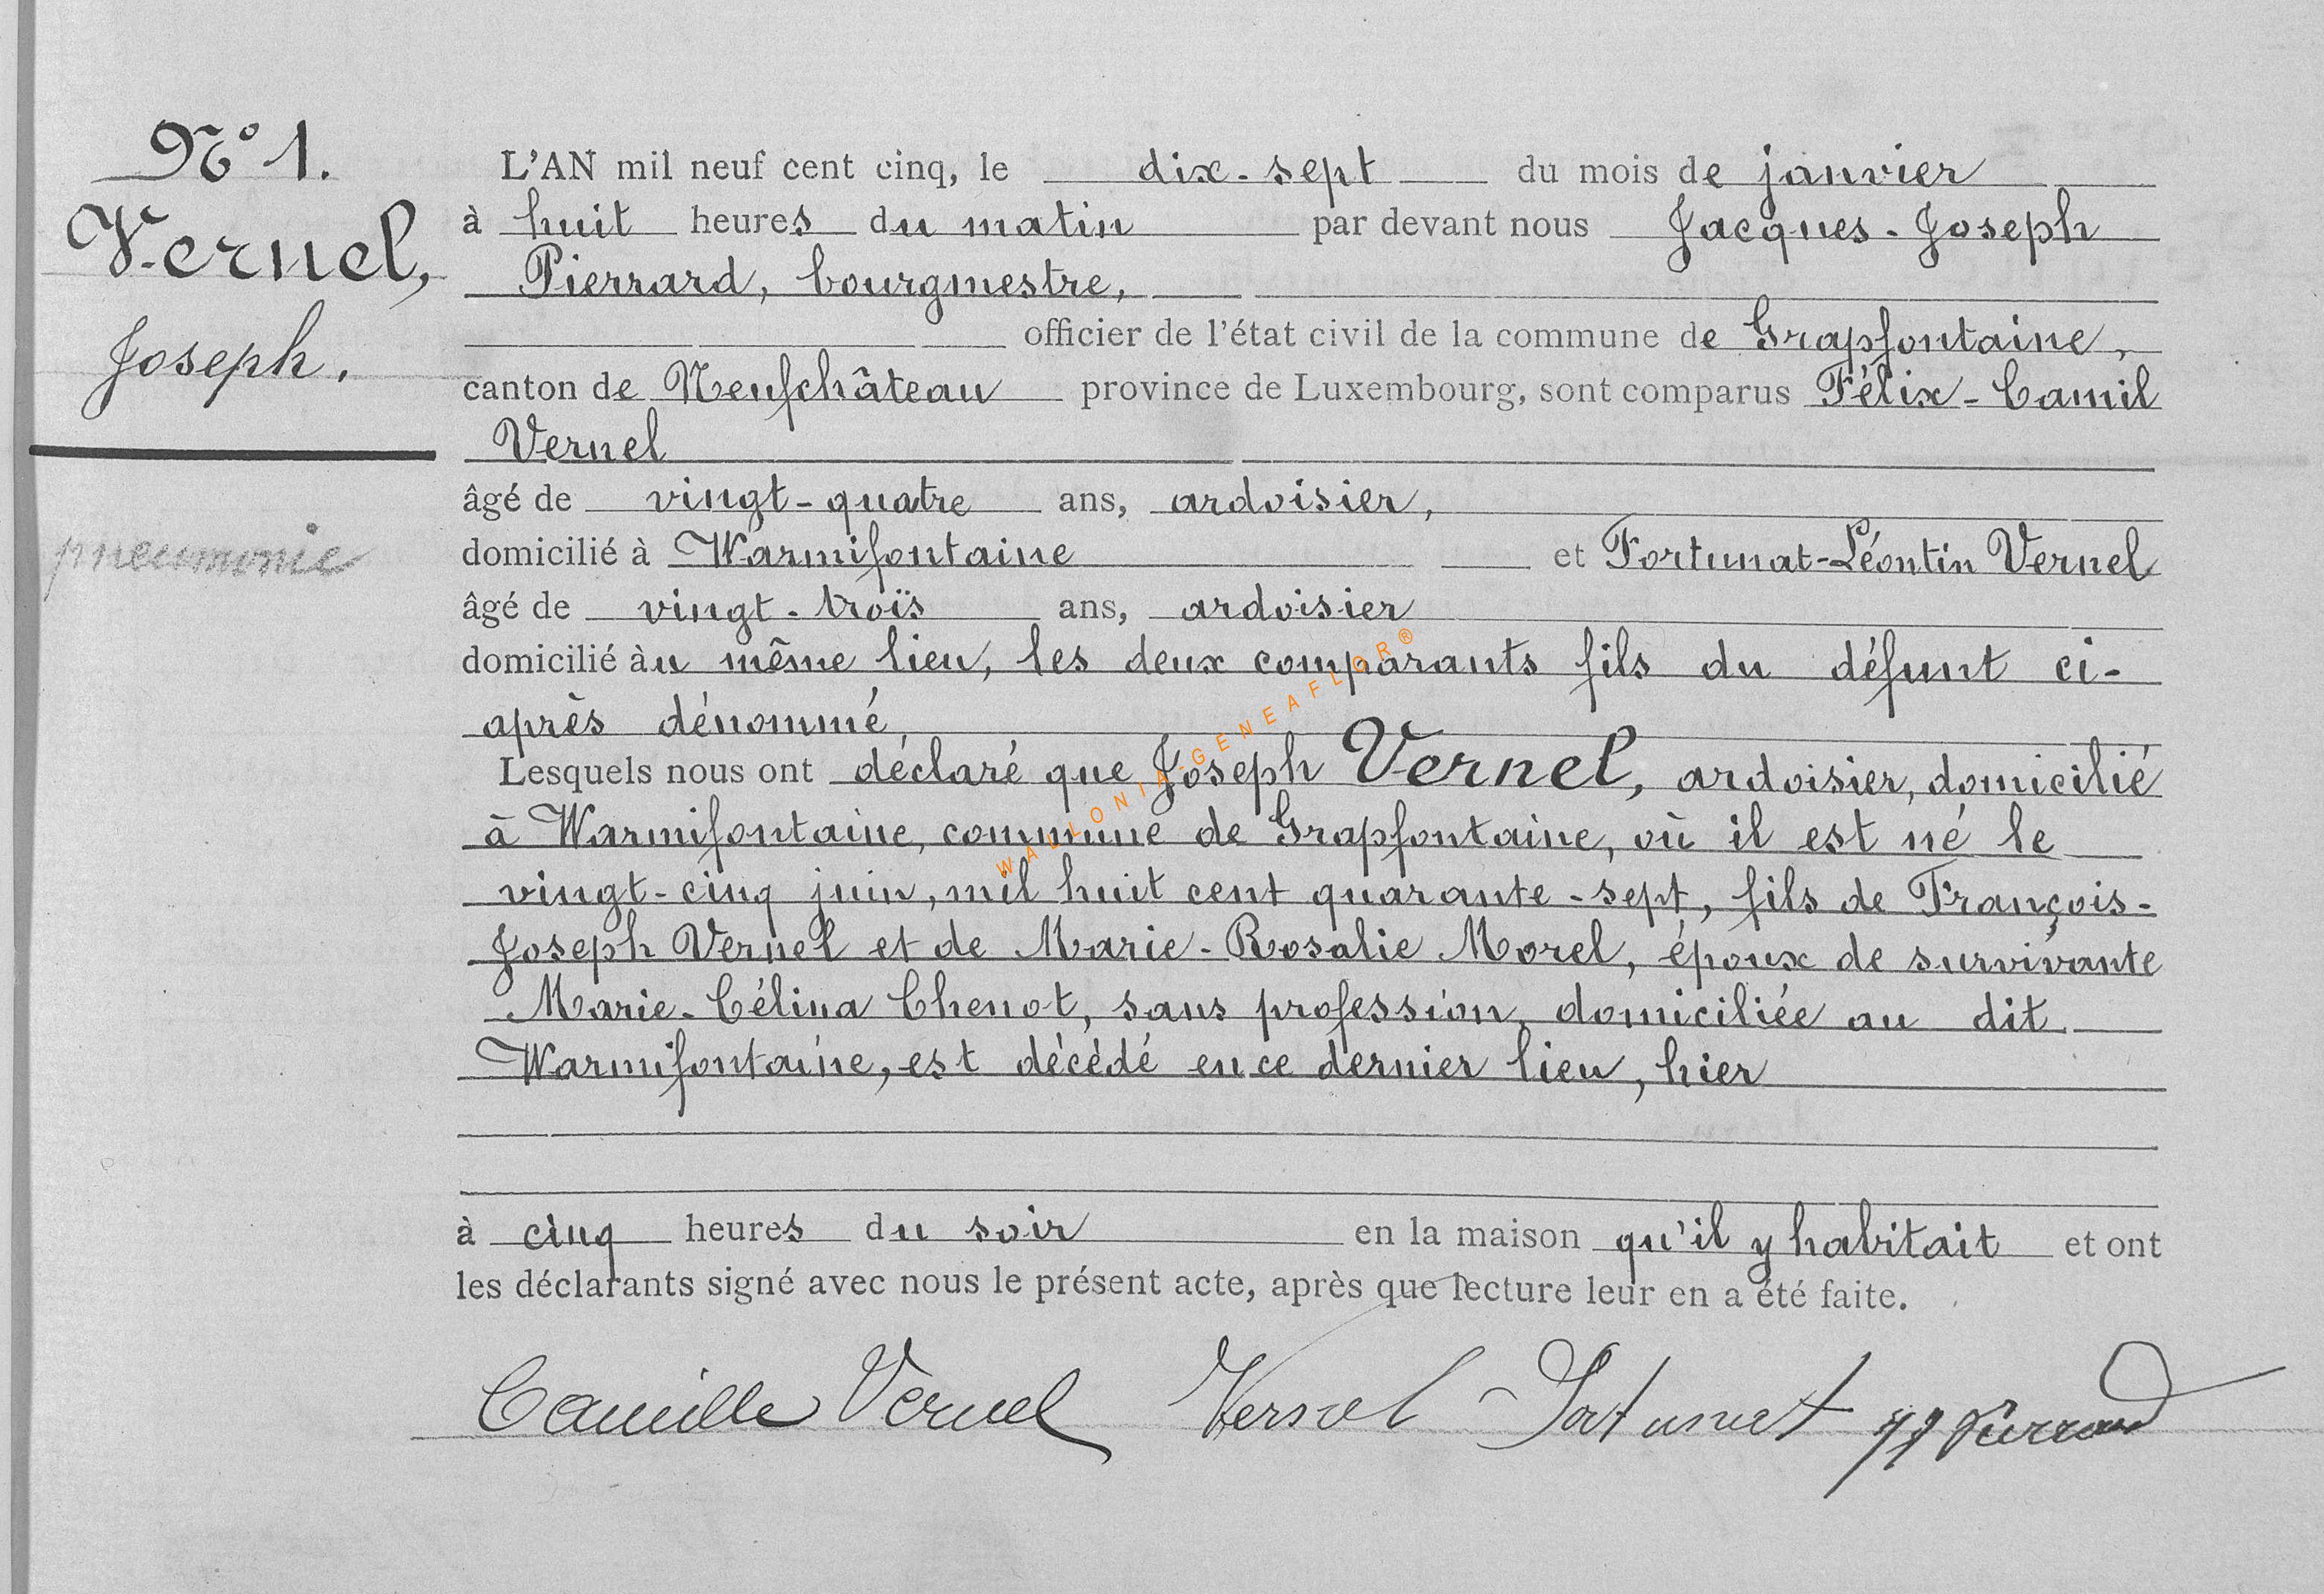 N° 1.
Vernel,
Joseph.
pneumonie
L'AN mil neuf cent cinq, le dix-sept du mois de janvier
à huit heures du matin par devant nous Jacques-Joseph
Pierrard, bourgmestre,
officier de l'état civil de la commune de Grapfontaine,
canton de Neufchâteau province de Luxembourg, sont comparus Félix-Camil
Vernel
âgé de vingt-quatre ans, ardoisier,
domicilié à Warmifontaine et Fortunat-Léontin Vernel
âgé de vingt-troïs ans, ardoisier
domicilié àu même lieu, les deux comparants fils du défunt ci-
après dénommé,
Lesquels nous ont déclaré que Joseph Vernel, ardoisier, domicilié
à Warmifontaine, commune de Grapfontaine, où il est né le
vingt-cinq juin, mil huit cent quarante-sept, fils de François-
Joseph Vernel et de Marie-Rosalie Morel, époux de survivante
Marie-Célina Chenot, sans profession, domiciliée au dit
Warmifontaine, est décédé en ce dernier lieu, hier
à cinq heures du soir en la maison qu'il y habitait et ont
les déclarants signé avec nous le présent acte, après que lecture leur en a été faite.
Camille Vernel Vernel Fortunat JJ Pierrard
WALLONIA-GENEAFLOR®